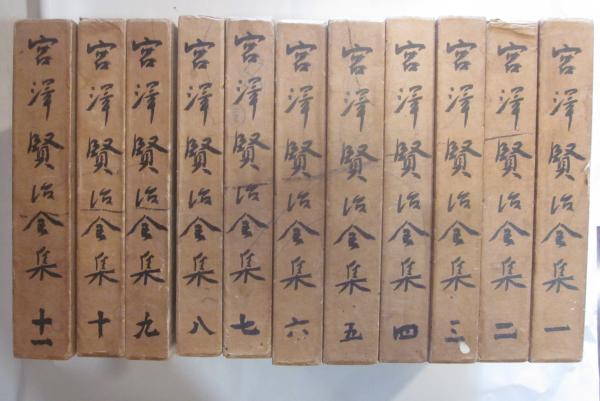 宮澤賢治全集 一
宮澤賢治全集 二
宮澤賢治全集 三
宮澤賢治全集 四
宮澤賢治全集 五
宮澤賢治全集 六
宮澤賢治全集 七
宮澤賢治全集 八
宮澤賢治全集 九
宮澤賢治全集 十
宮澤賢治全集 十一